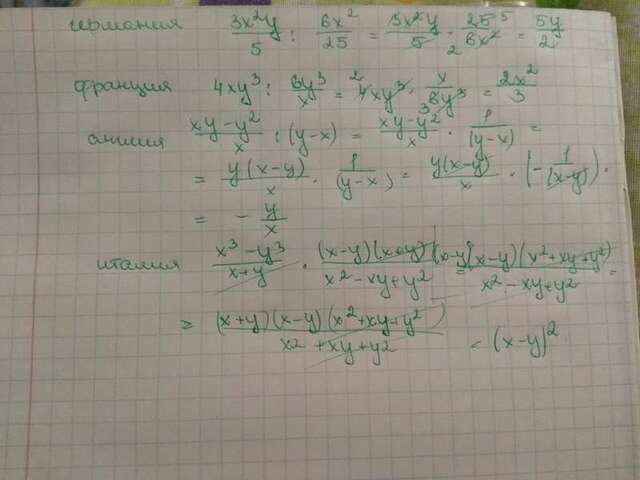 германия 3x²y/5 : 6x²/25 = 3x²y/5 · 25 5/2 6x² = 5y/2
франция 4xy³ : 6y³/x = ²4xy³ · x/3 6y³ = 2x²/3
англия xy-y²/x : (y-x) = xy-y²/x · 1/(y-x) =
= y(x-y)/x · 1/(y-x) = y(x-y)/x · (-1/(x-y)) ·
= - y/x
италия x³-y³/x+y · (x-y)(x+y)/x²-xy+y² = (x-y)(x-y)(x²+xy+y²)/x²-xy+y² =
= (x+y)(x-y)(x²+xy+y²)/x²+xy+y² = (x-y)²